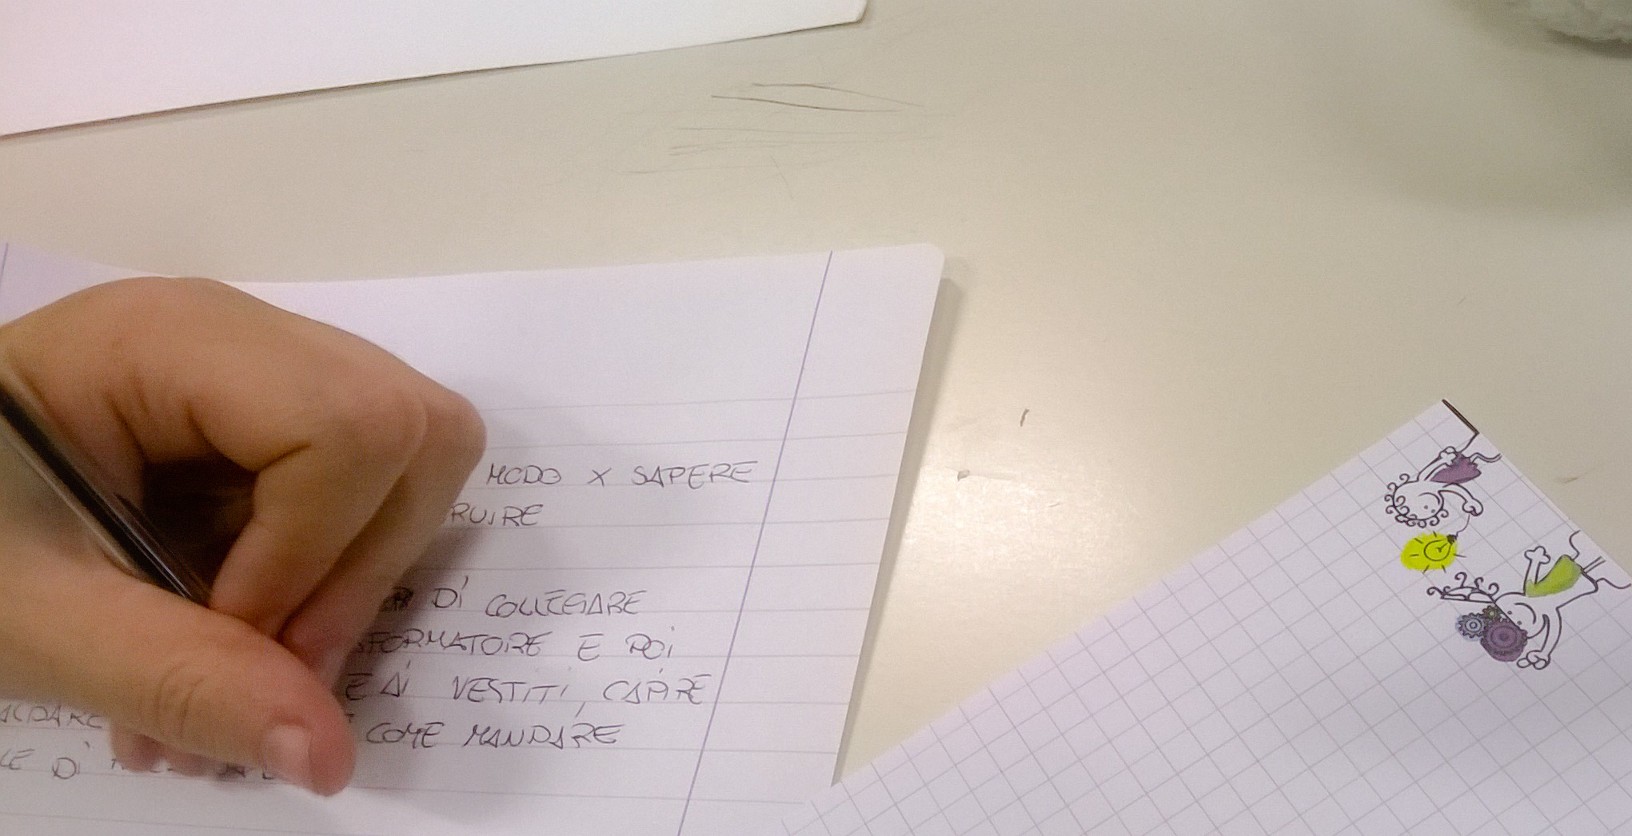 MODO X SAPERE
RUIRE
DI COLLEGARE
SFORMATORE E POI
E AI VESTITI, CAPIRE
ALDARE COME MANDARE
LE DI